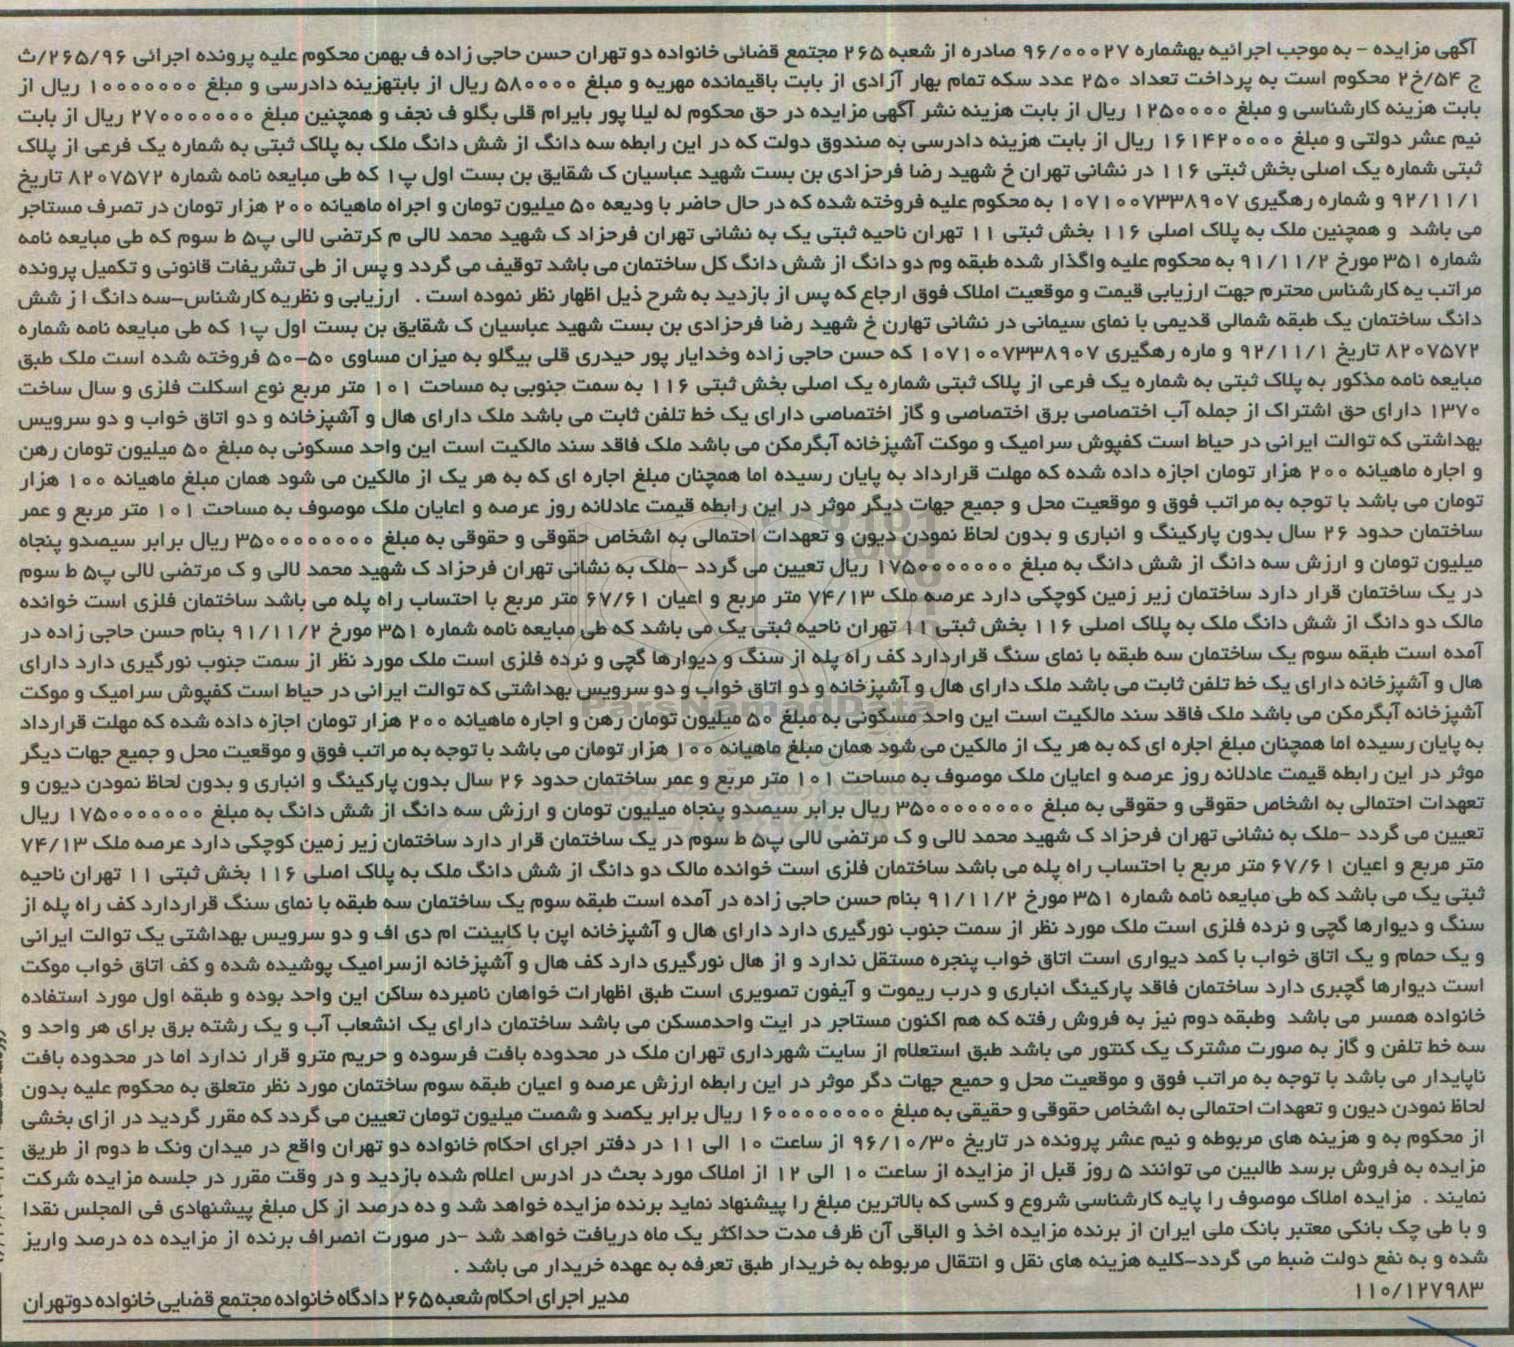 آگهی مزایده - به موجب اجرائیه بهشماره ۹۶/۰۰۰۲۷ صادره از شعبه ۲۶۵ مجتمع قضائی خانواده دو تهران حسن حاجی زاده ف بهمن محکوم علیه پرونده اجرائی ۲۶۵/۹۶/ث
ج ۵۴/خ۲ محکوم است به پرداخت تعداد ۲۵۰ عدد سکه تمام بهار آزادی از بابت باقیمانده مهریه و مبلغ ۵۸۰۰۰۰ ریال از بابتهزینه دادرسی و مبلغ ۱۰۰۰۰۰۰۰ ریال از
بابت هزینه کارشناسی و مبلغ ۱۲۵۰۰۰۰ ریال از بابت هزینه نشر آگهی مزایده در حق محکوم له لیلا پور بایرام قلی بگلو ف نجف و همچنین مبلغ ۲۷۰۰۰۰۰۰۰ ریال از بابت
نیم عشر دولتی و مبلغ ۱۶۱۴۲۰۰۰۰ ریال از بابت هزینه دادرسی به صندوق دولت که در این رابطه سه دانگ از شش دانگ ملک به پلاک ثبتی به شماره یک فرعی از پلاک
ثبتی شماره یک اصلی بخش ثبتی ۱۱۶ در نشانی تهران خ شهید رضا فرحزادی بن بست شهید عباسیان ک شقایق بن بست اول پ۱ که طی مبایعه نامه شماره ۸۲۰۷۵۷۲ تاریخ
۹۲/۱۱/۱ و شماره رهگیری ۱۰۷۱۰۰۷۳۳۸۹۰۷ به محکوم علیه فروخته شده که در حال حاضر با ودیعه ۵۰ میلیون تومان و اجراه ماهیانه ۲۰۰ هزار تومان در تصرف مستاجر
می باشد و همچنین ملک به پلاک اصلی ۱۱۶ بخش ثبتی ۱۱ تهران ناحیه ثبتی یک به نشانی تهران فرحزاد ک شهید محمد لالی م کرتضی لالی پ۵ ط سوم که طی مبایعه نامه
شماره ۳۵۱ مورخ ۹۱/۱۱/۲ به محکوم علیه واگذار شده طبقه وم دو دانگ از شش دانگ کل ساختمان می باشد توقیف می گردد و پس از طی تشریفات قانونی و تکمیل پرونده
مراتب یه کارشناس محترم جهت ارزیابی قیمت و موقعیت املاک فوق ارجاع که پس از بازدید به شرح ذیل اظهار نظر نموده است . ارزیابی و نظریه کارشناس-سه دانگ ا ز شش
دانگ ساختمان یک طبقه شمالی قدیمی با نمای سیمانی در نشانی تهارن خ شهید رضا فرحزادی بن بست شهید عباسیان ک شقایق بن بست اول پ۱ که طی مبایعه نامه شماره
۸۲۰۷۵۷۲ تاریخ ۹۲/۱۱/۱ و ماره رهگیری ۱۰۷۱۰۰۷۳۳۸۹۰۷ که حسن حاجی زاده وخدایار پور حیدری قلی بیگلو به میزان مساوی ۵۰-۵۰ فروخته شده است ملک طبق
مبایعه نامه مذکور به پلاک ثبتی به شماره یک فرعی از پلاک ثبتی شماره یک اصلی بخش ثبتی ۱۱۶ به سمت جنوبی به مساحت ۱۰۱ متر مربع نوع اسکلت فلزی و سال ساخت
۱۳۷۰ دارای حق اشتراک از جمله آب اختصاصی برق اختصاصی و گاز اختصاصی دارای یک خط تلفن ثابت می باشد ملک دارای هال و آشپزخانه و دو اتاق خواب و دو سرویس
بهداشتی که توالت ایرانی در حیاط است کفپوش سرامیک و موکت آشپزخانه آبگرمکن می باشد ملک فاقد سند مالکیت است این واحد مسکونی به مبلغ ۵۰ میلیون تومان رهن
و اجاره ماهیانه ۲۰۰ هزار تومان اجازه داده شده که مهلت قرارداد به پایان رسیده اما همچنان مبلغ اجاره ای که به هر یک از مالکین می شود همان مبلغ ماهیانه ۱۰۰ هزار
تومان می باشد با توجه به مراتب فوق و موقعیت محل و جمیع جهات دیگر موثر در این رابطه قیمت عادلانه روز عرصه و اعایان ملک موصوف به مساحت ۱۰۱ متر مربع و عمر
ساختمان حدود ۲۶ سال بدون پارکینگ و انباری و بدون لحاظ نمودن دیون و تعهدات احتمالی به اشخاص حقوقی و حقوقی به مبلغ ۳۵۰۰۰۰۰۰۰۰ ریال برابر سیصدو پنجاه
میلیون تومان و ارزش سه دانگ از شش دانگ به مبلغ ۱۷۵۰۰۰۰۰۰۰ ریال تعیین می گردد -ملک به نشانی تهران فرحزاد ک شهید محمد لالی و ک مرتضی لالی پ۵ ط سوم
در یک ساختمان قرار دارد ساختمان زیر زمین کوچکی دارد عرصه ملک ۷۴/۱۳ متر مربع و اعیان ۶۷/۶۱ متر مربع با احتساب راه پله می باشد ساختمان فلزی است خوانده
مالک دو دانگ از شش دانگ ملک به پلاک اصلی ۱۱۶ بخش ثبتی ۱۱ تهران ناحیه ثبتی یک می باشد که طی مبایعه نامه شماره ۳۵۱ مورخ ۹۱/۱۱/۲ بنام حسن حاجی زاده در
آمده است طبقه سوم یک ساختمان سه طبقه با نمای سنگ قراردارد کف راه پله از سنگ و دیوارها گچی و نرده فلزی است ملک مورد نظر از سمت جنوب نورگیری دارد دارای
هال و آشپزخانه دارای یک خط تلفن ثابت می باشد ملک دارای هال و آشپزخانه و دو اتاق خواب و دو سرویس بهداشتی که توالت ایرانی در حیاط است کفپوش سرامیک و موکت
آشپزخانه آبگرمکن می باشد ملک فاقد سند مالکیت است این واحد مسکونی به مبلغ ۵۰ میلیون تومان رهن و اجاره ماهیانه ۲۰۰ هزار تومان اجازه داده شده که مهلت قرارداد
به پایان رسیده اما همچنان مبلغ اجاره ای که به هر یک از مالکین می شود همان مبلغ ماهیانه ۱۰۰ هزار تومان می باشد با توجه به مراتب فوق و موقعیت محل و جمیع جهات دیگر
موثر در این رابطه قیمت عادلانه روز عرصه و اعایان ملک موصوف به مساحت ۱۰۱ متر مربع و عمر ساختمان حدود ۲۶ سال بدون پارکینگ و انباری و بدون لحاظ نمودن دیون و
تعهدات احتمالی به اشخاص حقوقی و حقوقی به مبلغ ۳۵۰۰۰۰۰۰۰۰ ریال برابر سیصدو پنجاه میلیون تومان و ارزش سه دانگ از شش دانگ به مبلغ ۱۷۵۰۰۰۰۰۰۰ ریال
تعیین می گردد -ملک به نشانی تهران فرحزاد ک شهید محمد لالی و ک مرتضی لالی پ۵ ط سوم در یک ساختمان قرار دارد ساختمان زیر زمین کوچکی دارد عرصه ملک ۷۴/۱۳
متر مربع و اعیان ۶۷/۶۱ متر مربع با احتساب راه پله می باشد ساختمان فلزی است خوانده مالک دو دانگ از شش دانگ ملک به پلاک اصلی ۱۱۶ بخش ثبتی ۱۱ تهران ناحیه
ثبتی یک می باشد که طی مبایعه نامه شماره ۳۵۱ مورخ ۹۱/۱۱/۲ بنام حسن حاجی زاده در آمده است طبقه سوم یک ساختمان سه طبقه با نمای سنگ قراردارد کف راه پله از
سنگ و دیوارها گچی و نرده فلزی است ملک مورد نظر از سمت جنوب نورگیری دارد دارای هال و آشپزخانه اپن با کابینت ام دی اف و دو سرویس بهداشتی یک توالت ایرانی
و یک حمام و یک اتاق خواب با کمد دیواری است اتاق خواب پنجره مستقل ندارد و از هال نورگیری دارد کف هال و آشپزخانه ازسرامیک پوشیده شده و کف اتاق خواب موکت
است دیوارها گچبری دارد ساختمان فاقد پارکینگ انباری و درب ریموت و آیفون تصویری است طبق اظهارات خواهان نامبرده ساکن این واحد بوده و طبقه اول مورد استفاده
خانواده همسر می باشد وطبقه دوم نیز به فروش رفته که هم اکنون مستاجر در ایت واحدمسکن می باشد ساختمان دارای یک انشعاب آب و یک رشته برق برای هر واحد و
سه خط تلفن و گاز به صورت مشترک یک کنتور می باشد طبق استعلام از سایت شهرداری تهران ملک در محدوده بافت فرسوده و حریم مترو قرار ندارد اما در محدوده بافت
ناپایدار می باشد با توجه به مراتب فوق و موقعیت محل و حمیع جهات دگر موثر در این رابطه ارزش عرصه و اعیان طبقه سوم ساختمان مورد نظر متعلق به محکوم علیه بدون
لحاظ نمودن دیون و تعهدات احتمالی به اشخاص حقوقی و حقیقی به مبلغ ۱۶۰۰۰۰۰۰۰۰ ریال برابر یکصد و شصت میلیون تومان تعیین می گردد که مقرر گردید در ازای بخشی
از محکوم به و هزینه های مربوطه و نیم عشر پرونده در تاریخ ۹۶/۱۰/۳۰ از ساعت ۱۰ الی ۱۱ در دفتر اجرای احکام خانواده دو تهران واقع در میدان ونک ط دوم از طریق
مزایده به فروش برسد طالبین می توانند ۵ روز قبل از مزایده از ساعت ۱۰ الی ۱۲ از املاک مورد بحث در ادرس اعلام شده بازدید و در وقت مقرر در جلسه مزایده شرکت
نمایند . مزایده املاک موصوف را پایه کارشناسی شروع و کسی که بالاترین مبلغ را پیشنهاد نماید برنده مزایده خواهد شد و ده درصد از کل مبلغ پیشنهادی فی المجلس نقدا
و با طی چک بانکی معتبر بانک ملی ایران از برنده مزایده اخذ و الباقی آن ظرف مدت حداکثر یک ماه دریافت خواهد شد -در صورت انصراف برنده از مزایده ده درصد واریز
شده و به نفع دولت ضبط می گردد-کلیه هزینه های نقل و انتقال مربوطه به خریدار طبق تعرفه به عهده خریدار می باشد .
۱۱۰/۱۲۷۹۸۳
مدیر اجرای احکام شعبه ۲۶۵ دادگاه خانواده مجتمع قضایی خانواده دوتهران
ParsNamadData